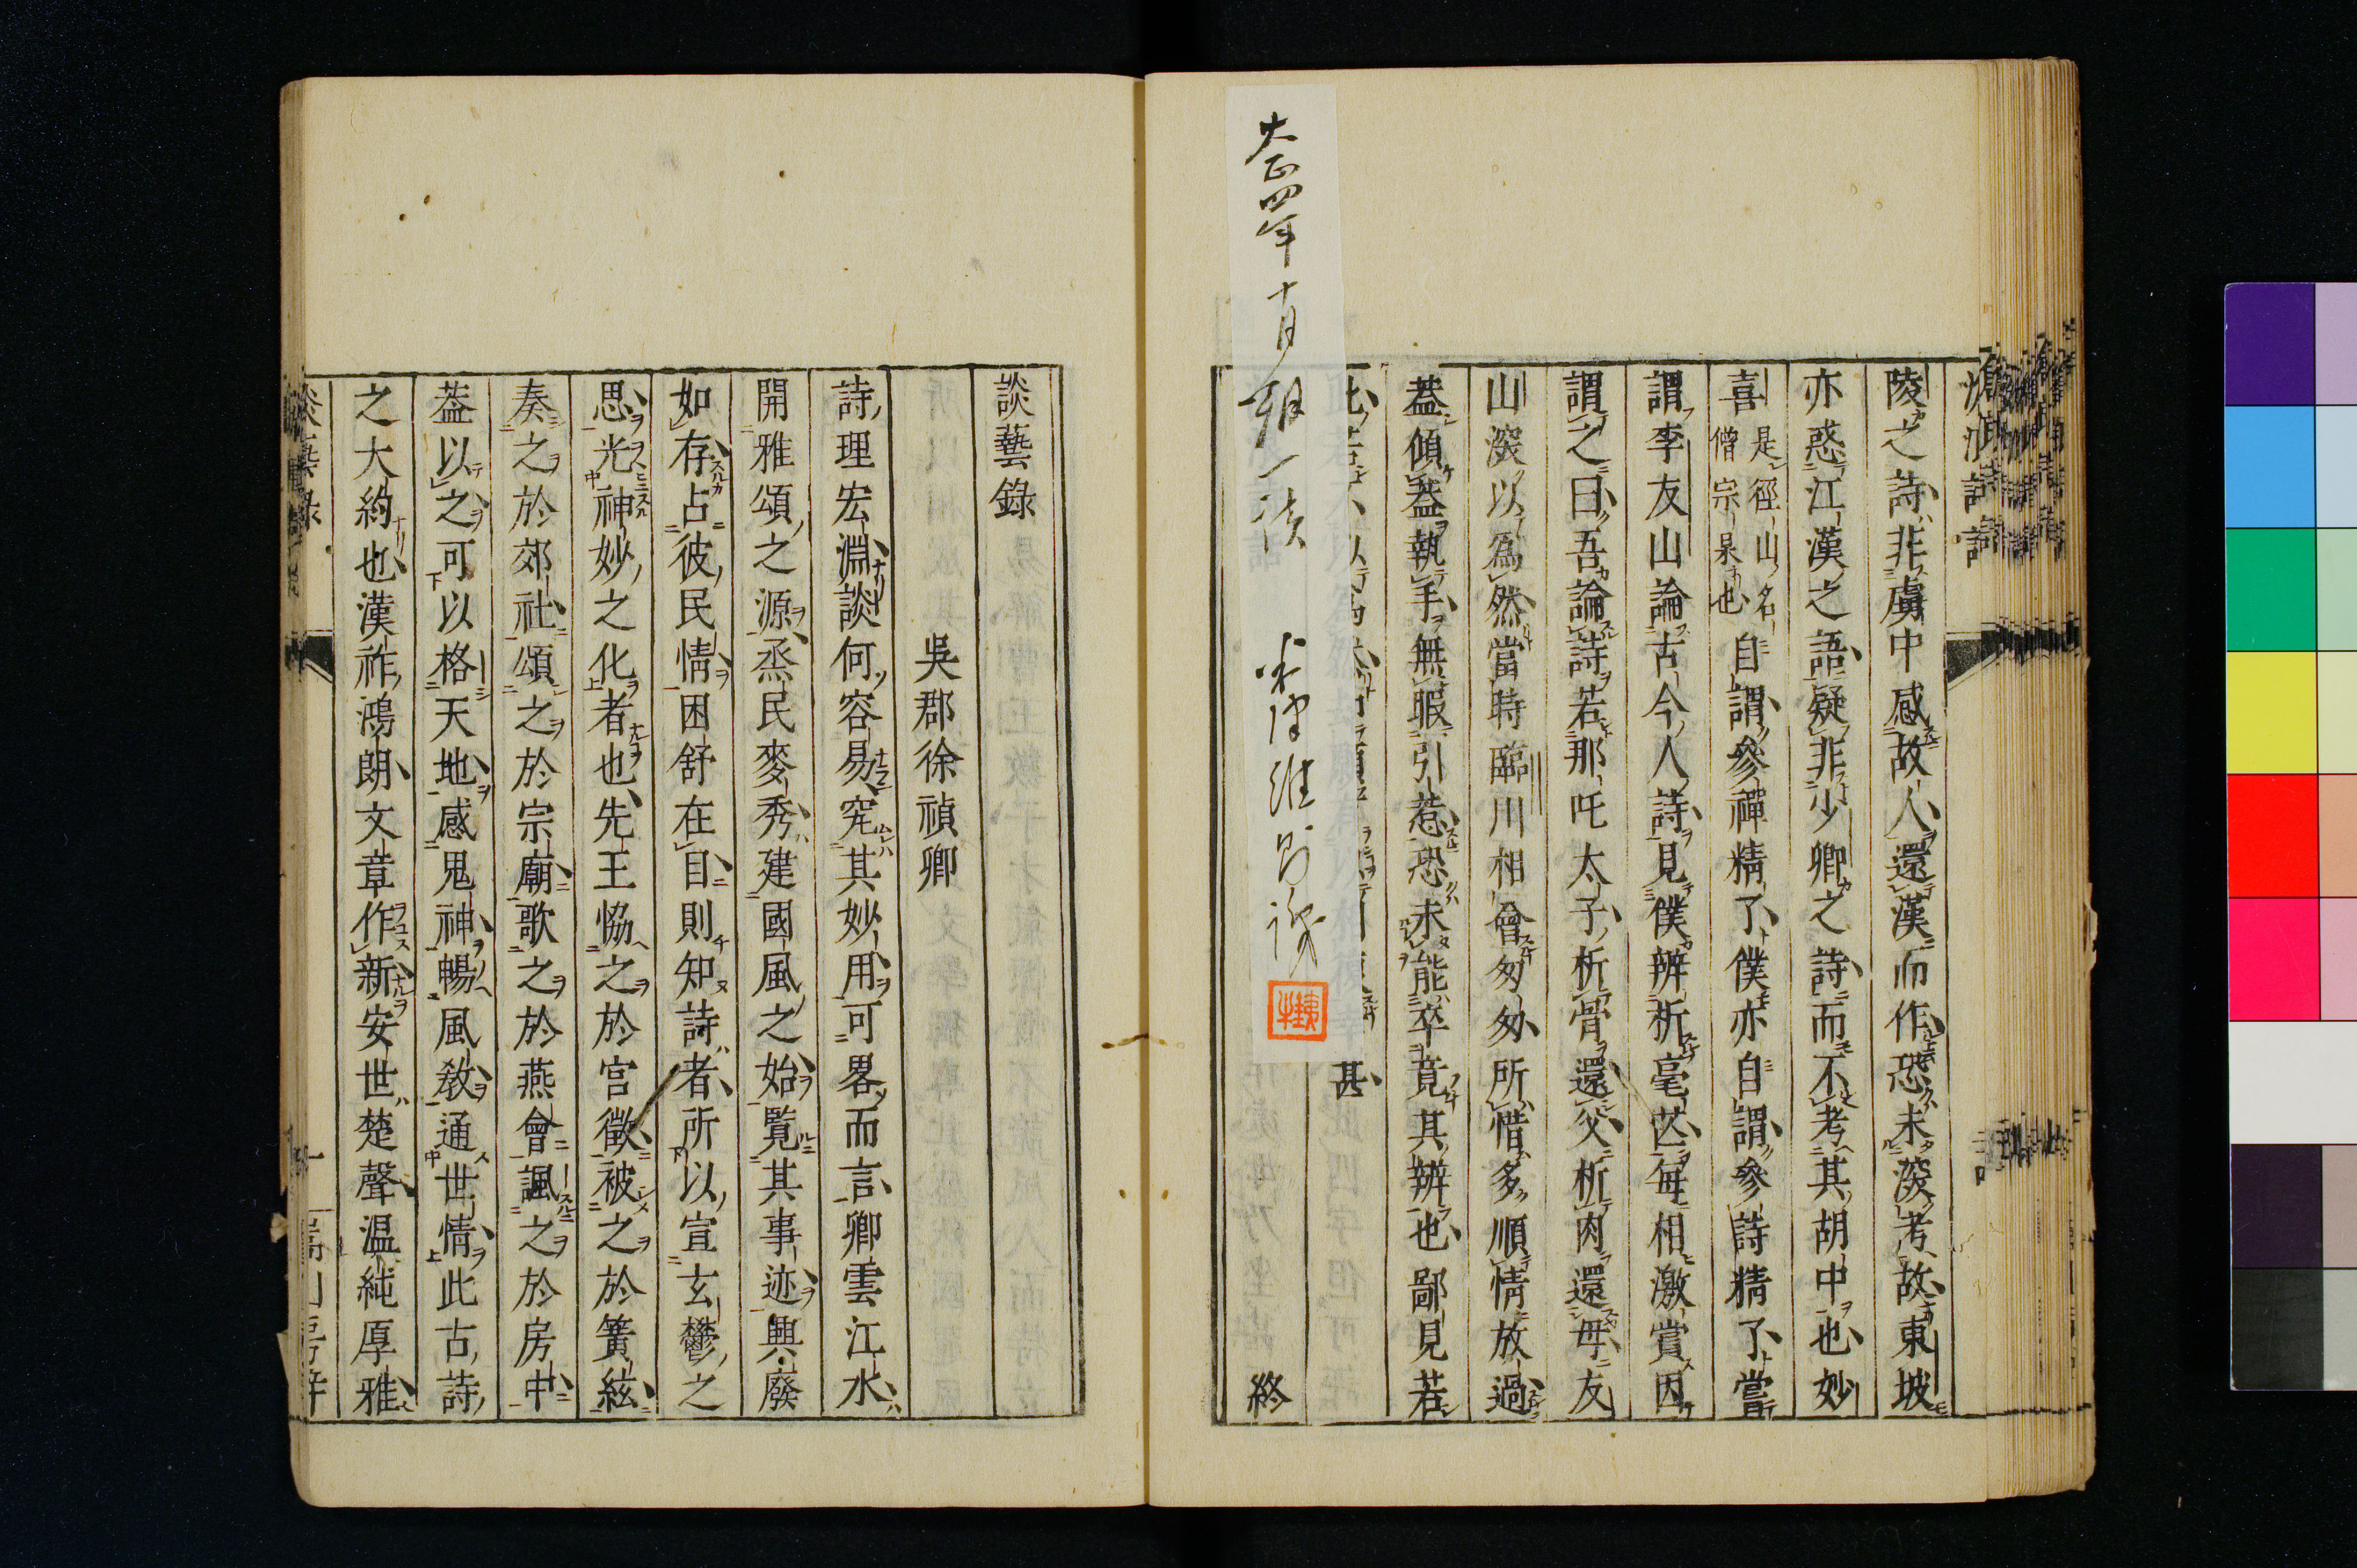 陵之詩非虜中感故人還漢而作恐未深考故東坡
亦惑江漢之語疑非少卿之詩而不考其胡中也妙
喜是徑山名僧宗杲也自謂參禪精了僕亦自謂參詩精了嘗
謂李友山論古今人詩見僕辨析毫芒每相激賞因
謂之曰吾論詩若那吒太子析骨還父析肉還母友
山深以為然當時臨川相會匆匆所惜多順情放過
葢傾葢執手無暇引惹恐未能卒竟其辨也鄙見若
甚
終
大正四年十月
談藝錄
吳郡徐禎卿
詩理宏淵談何容易究其妙用可畧而言卿雲江水
開雅頌之源烝民麥秀建國風之始覧其事迹興廢
如存占彼民情困舒在目則知詩者所以宣玄鬱之
思光神妙之化者也先王恊之於宮徵被之於簧絃
奏之於郊社頌之於宗廟歌之於燕會諷之於房中
葢以之可以格天地感鬼神暢風敎通世情此古詩
之大約也漢祚鴻朗文章作新安世楚聲温純厚雅